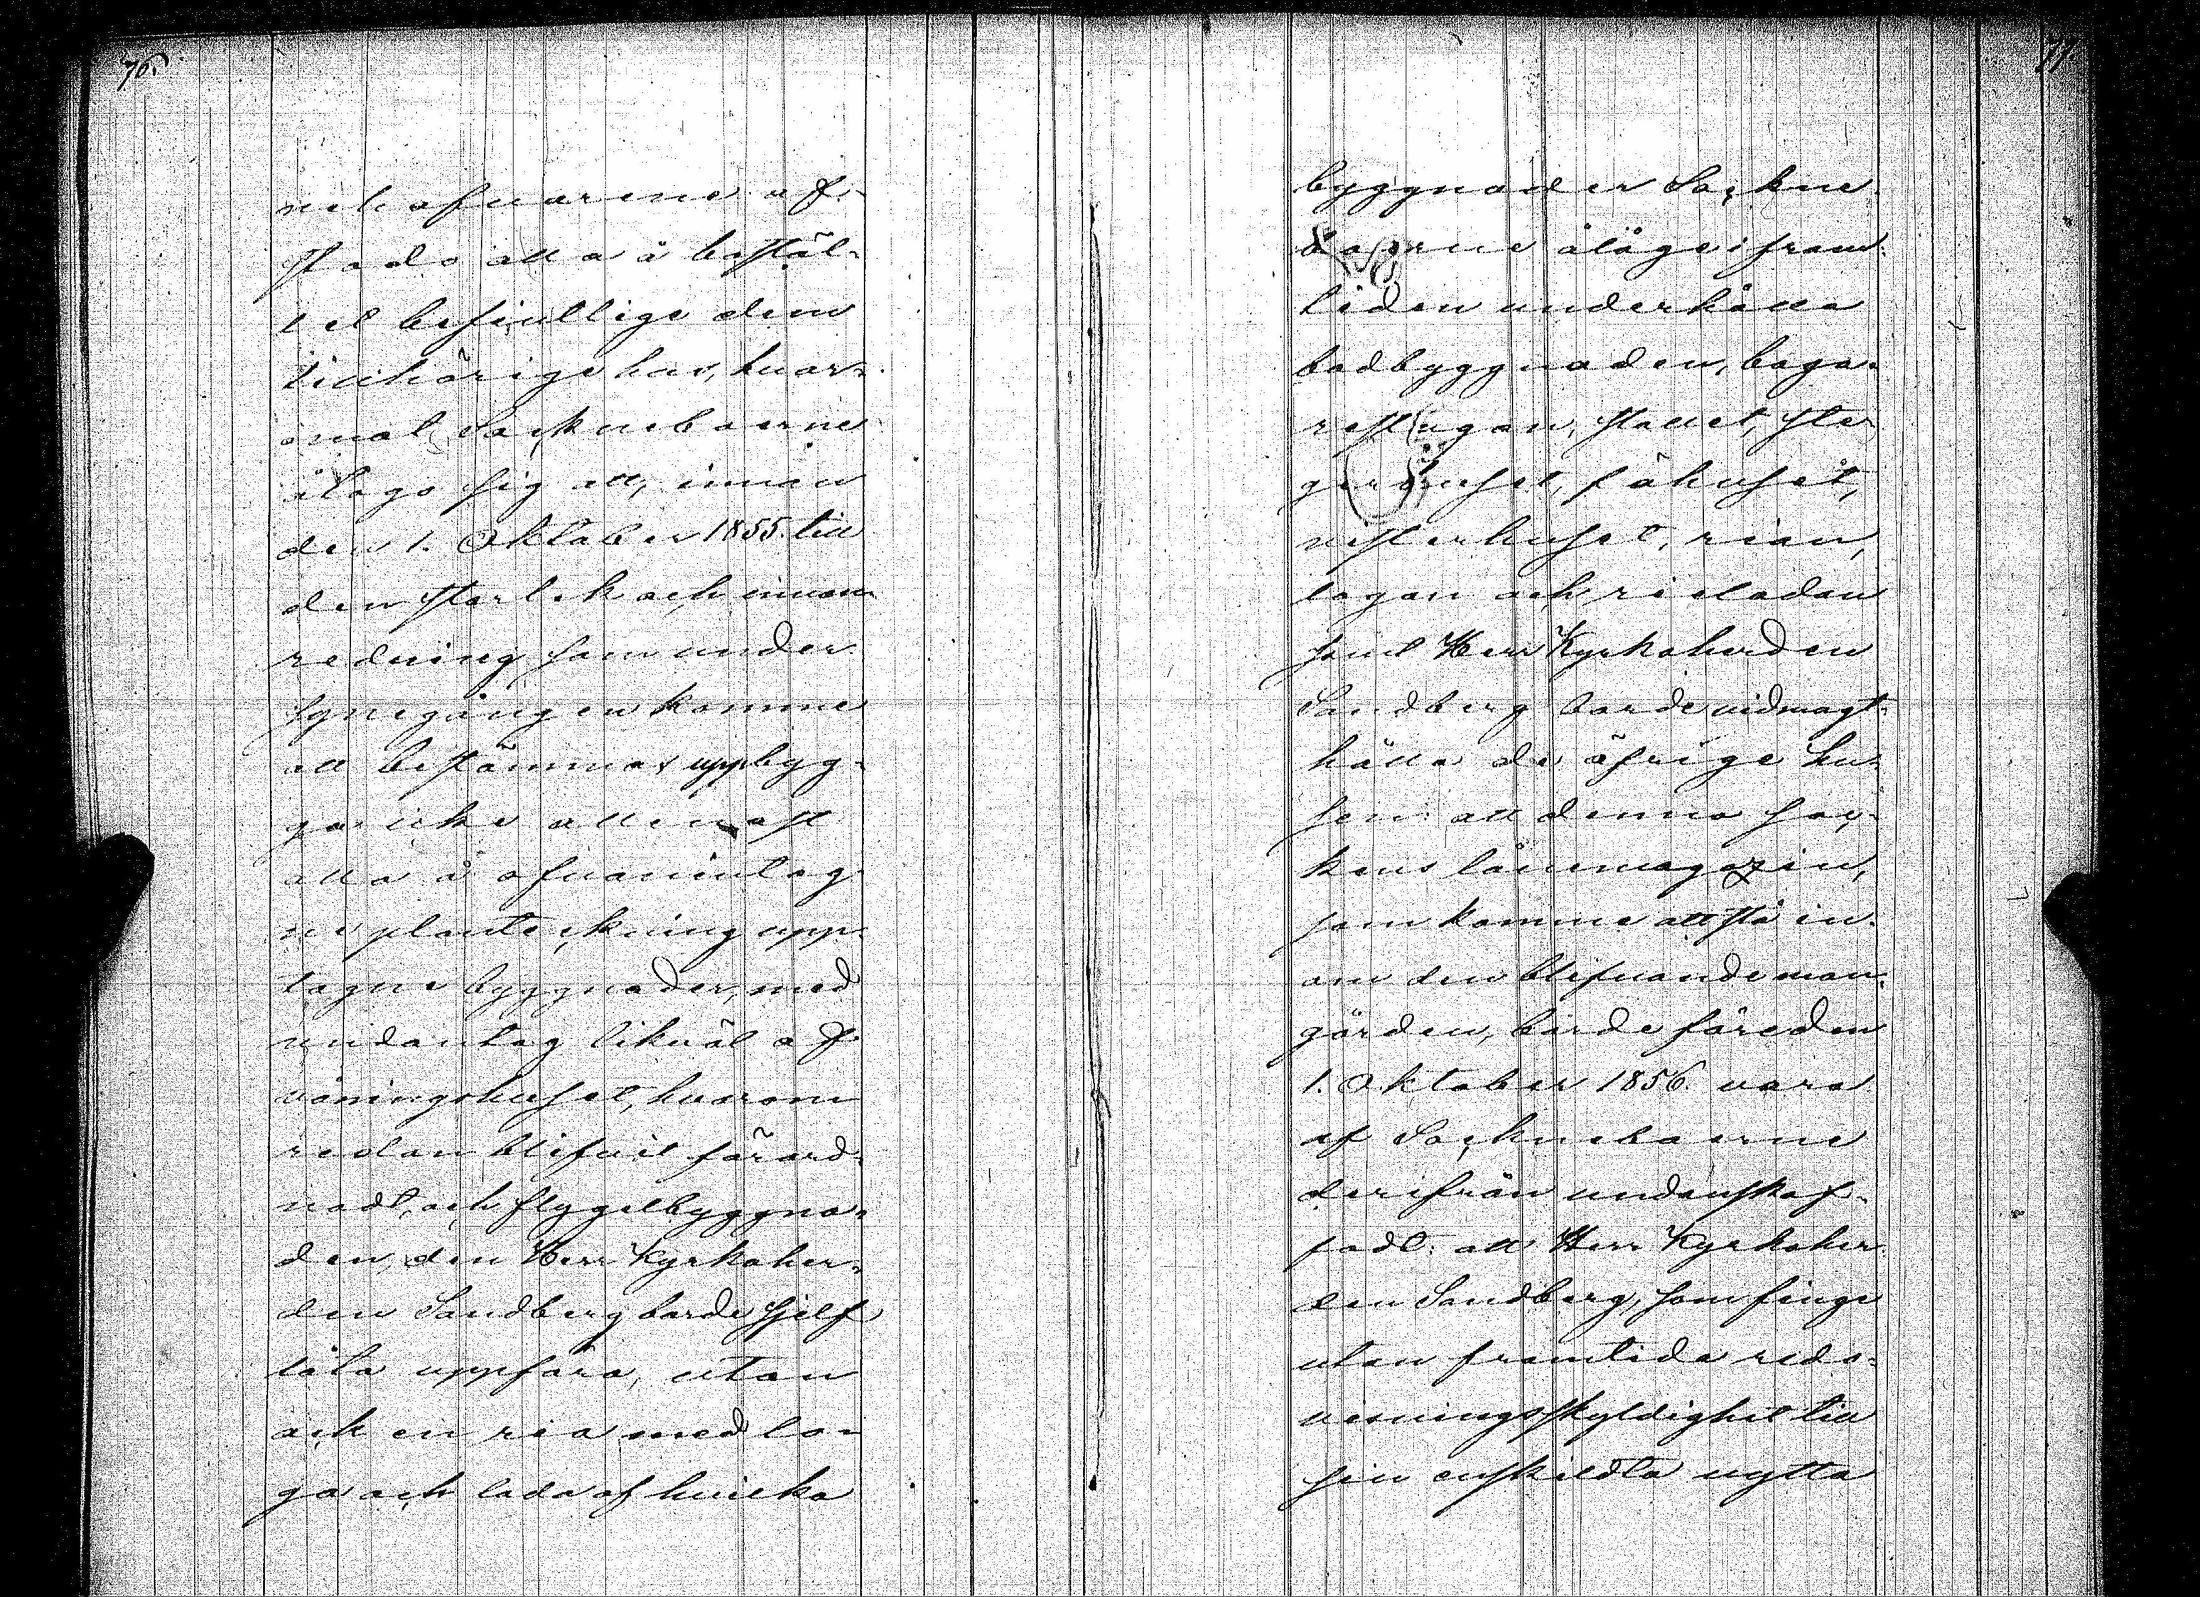 76.
nehafvarene af-
stado alla å bostäl-
let befintlige dem
tillhörige hus, hvar-
emot Sockneboerne
åtogo sig att, innan
den 1. Oktober 1855. till
den storlek och innan-
redning som under
synegången komme
att bestämmas uppbyg-
ga icke allenast
alla å ofvanintag-
ne planteckning upp-
tagne byggnader, med
undantag likväl af
våningshuset, hvarom
redan blifvit förord-
nadt, och flygelbyggna-
den, den Herr Kyrkoher-
den Sandberg borde sjelf
låta uppföra, utan
ock en ria med lo-
ga och lada af hvilka
77.
byggnader Sockne-
boerne ålåge i fram-
tiden underhålla
badbyggnaden, baga-
restugan, stallet, ste-
gerhuset, fähuset,
visthuset, rian,
logan och rieladan
samt Herr Kyrkoherden
Sandberg borde vidmagt-
hålla de öfrige hu-
sen: att denna soc-
kens lånemagazin,
som komme att stå in-
om den blifvande man-
gården, borde före den
1. Oktober 1856. vara
af Socknebоerne
derifrån undanskaf-
fadt: att Herr Kyrkoher-
den Sandberg, som finge
utan framtida redo-
visningsskyldighet till
sin enskildta nytta